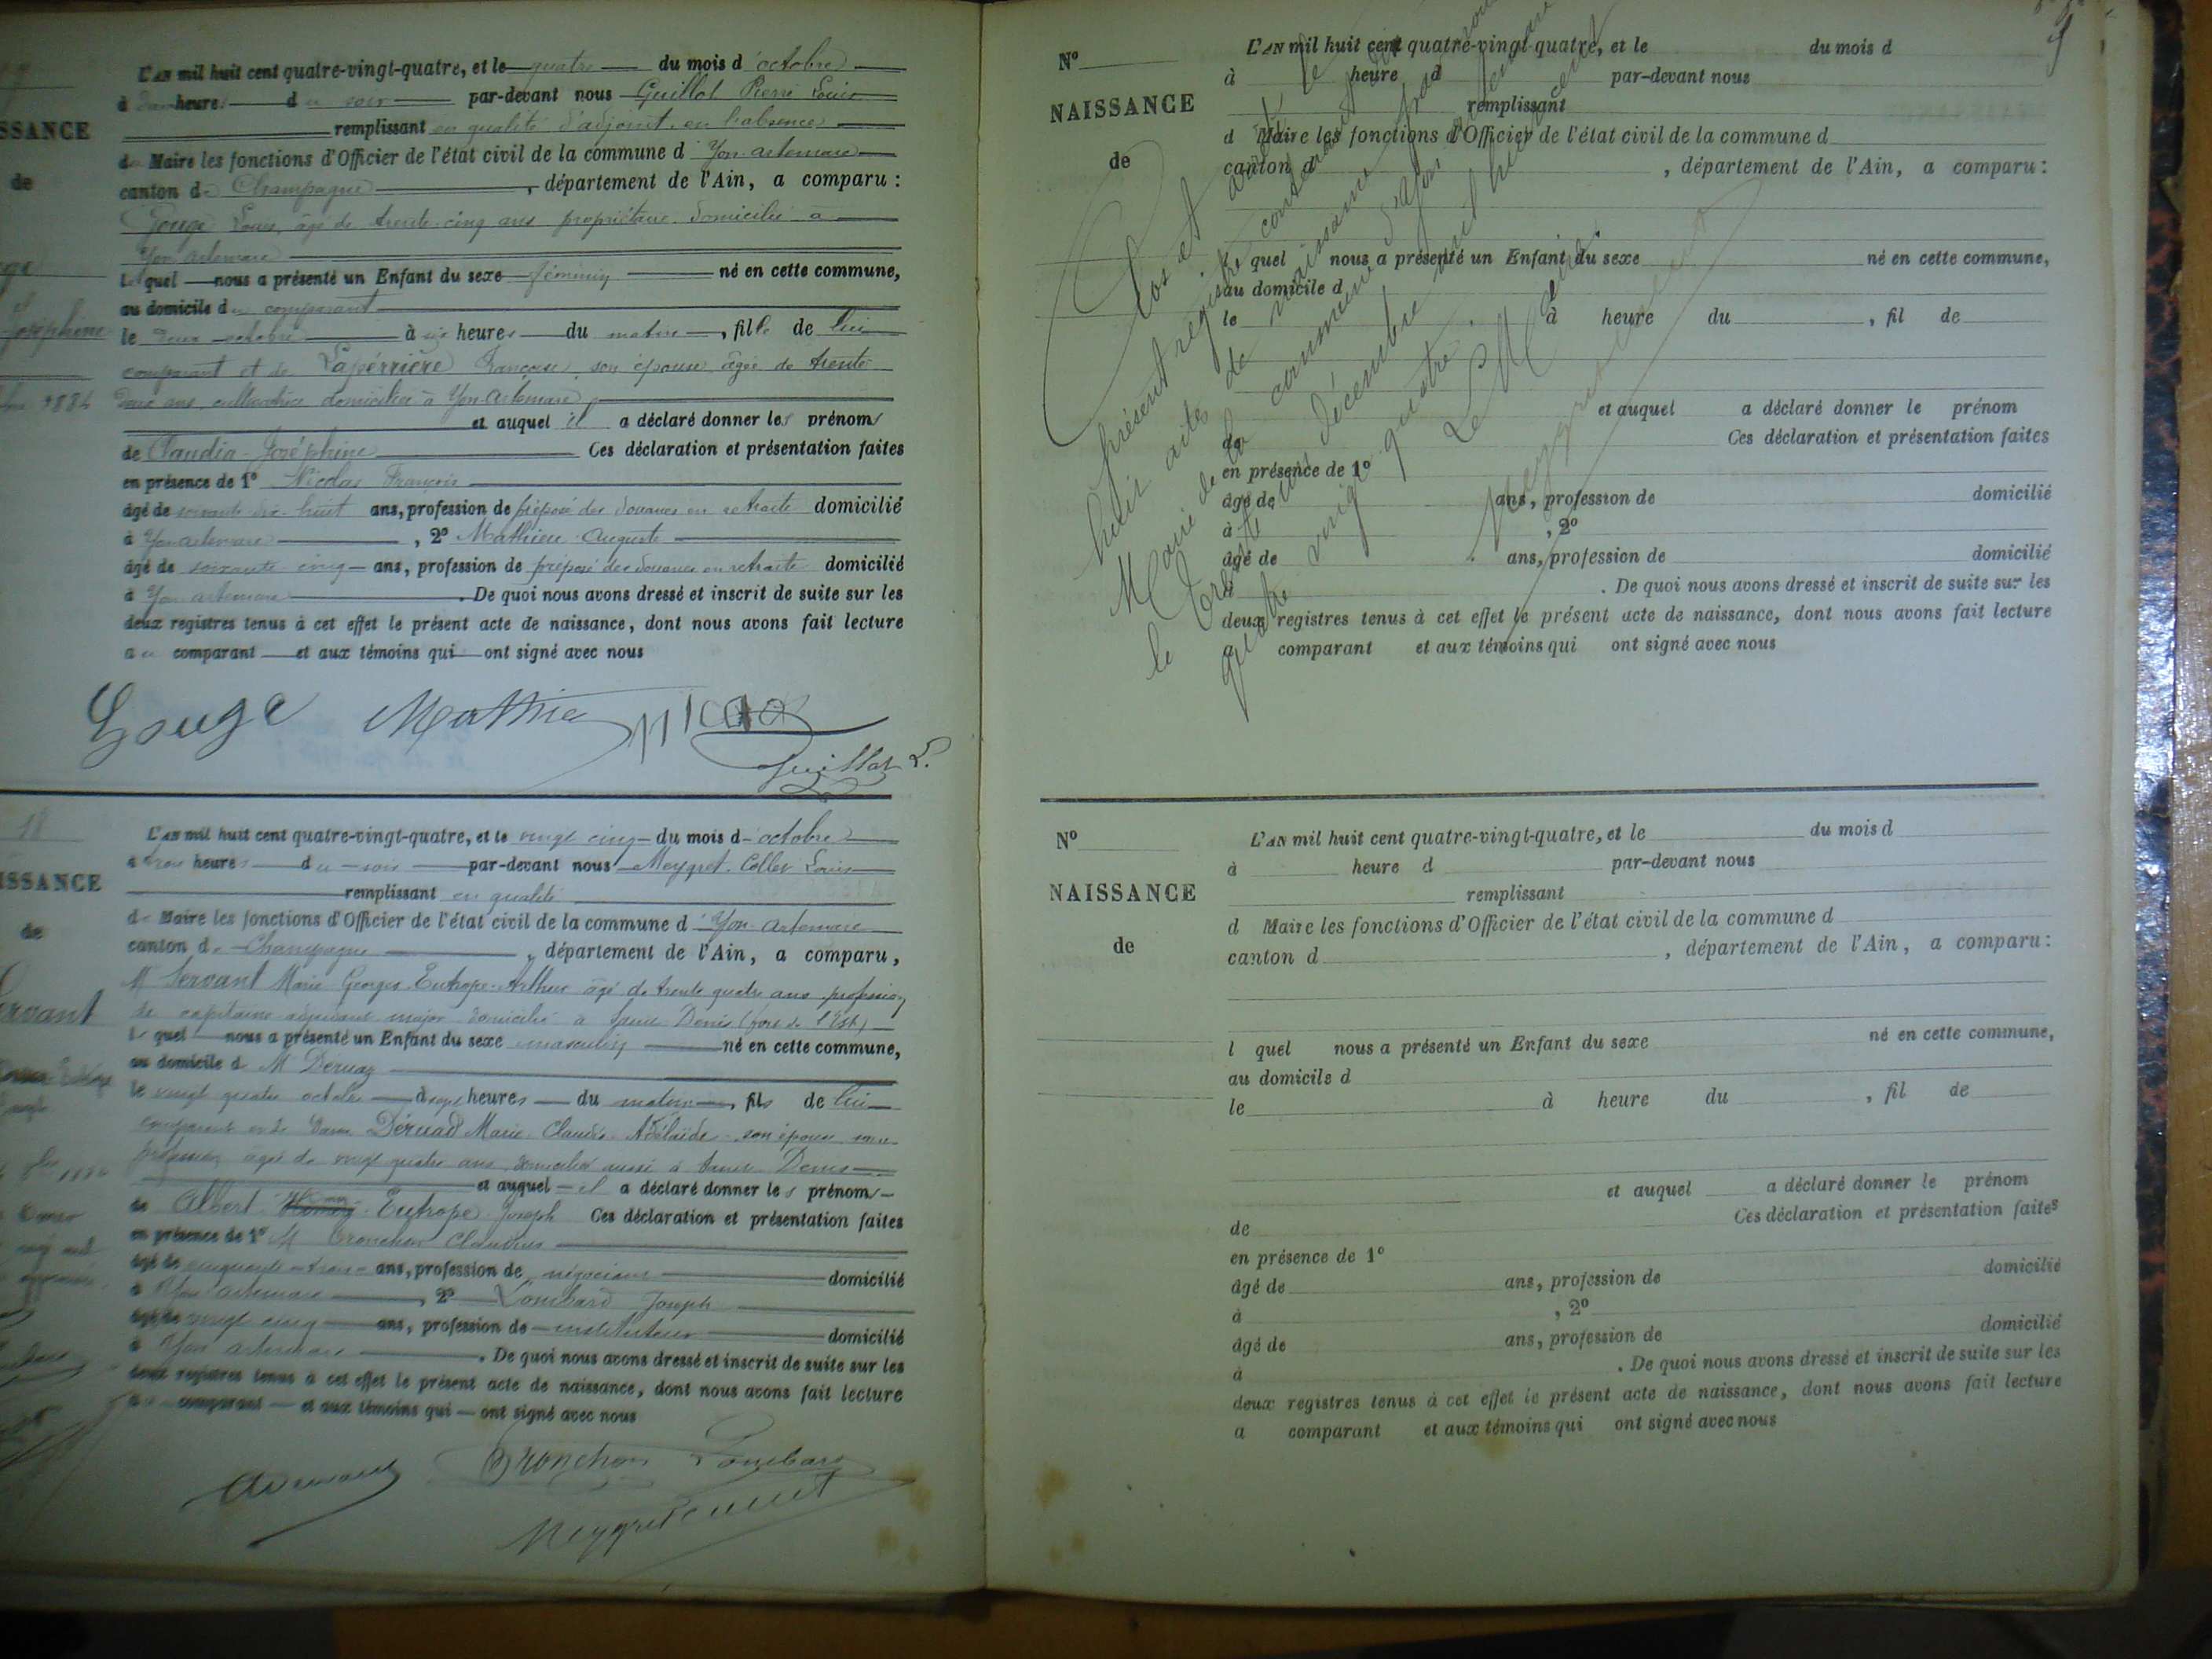 L'AN mil huit cent quatre-vingt-quatre, et le quatre du mois d'octobre
à heures du soir par-devant nous Guillot Pierre Louis
remplissant en qualité d'adjoint en l'absence
de Maire les fonctions d'Officier de l'état civil de la commune d'Yon artemare
canton de Champagne, département de l'Ain, a comparu :
Gouge Louis, âgé de trente cinq ans propriétaire domicilié à
Yon artemare
lequel nous a présenté un Enfant du sexe féminin né en cette commune,
au domicile du comparant
le deux octobre à six heures du matin, fille de lui
comparant et de Lapérrière Françoise son épouse âgée de trente
ans cultivatrice domiciliée à Yon artemare
et auquel il a déclaré donner les prénoms
de Claudia Joséphine Ces déclaration et présentation faites
en présence de 1° Nicolas François
âgé de soixante dix huit ans, profession de préposé des douanes en retraite domicilié
à Yon artemare, 2° Mathieu Auguste
âgé de soixante cinq ans, profession de préposé des douanes en retraite domicilié
à Yon artemare. De quoi nous avons dressé et inscrit de suite sur les
deux registres tenus à cet effet le présent acte de naissance, dont nous avons fait lecture
au comparant et aux témoins qui ont signé avec nous
Gouge Mathieu Nicolas
Guillot L.
SSANCE
de
Joséphine
1884
18
ISSANCE
de
ervant
L'AN mil huit cent quatre-vingt-quatre, et le vingt cinq du mois d'octobre
à trois heures du soir par-devant nous Meygret Collet Louis
remplissant en qualité
de Maire les fonctions d'Officier de l'état civil de la commune d'Yon artemare
canton de Champagne, département de l'Ain, a comparu,
M Servant Marie Georges Eutrope Arthur âgé de trente quatre ans profession
de capitaine adjudant major domicilié à Saint Denis (fort de l'Est)
lequel nous a présenté un Enfant du sexe masculin né en cette commune,
au domicile de M Deruaz
le vingt quatre octobre à onze heures du matin, fils de lui
comparant et de Dame Déruad Marie Claudia Adélaïde son épouse sans
profession âgée de vingt quatre ans domiciliée aussi à Saint Denis
et auquel il a déclaré donner les prénoms
de Albert Eutrope Joseph Ces déclaration et présentation faites
en présence de 1° M Tronchon Claudius
âgé de cinquante ans, profession de négociant domicilié
à Yon artemare, 2° Lombard Joseph
âgé de vingt cinq ans, profession de instituteur domicilié
à Yon artemare. De quoi nous avons dressé et inscrit de suite sur les
deux registres tenus à cet effet le présent acte de naissance, dont nous avons fait lecture
au comparant et aux témoins qui ont signé avec nous
Tronchon Lombard
Meygret Collet
N°
NAISSANCE
de
L'AN mil huit cent quatre-vingt-quatre, et le du mois d
à heure d par-devant nous
remplissant
d Maire les fonctions d'Officier de l'état civil de la commune d
canton d , département de l'Ain, a comparu :
l quel nous a présenté un Enfant du sexe né en cette commune,
au domicile d
le à heure du , fil de
et auquel a déclaré donner le prénom
de Ces déclaration et présentation faites
en présence de 1°
âgé de ans, profession de domicilié
à , 2°
âgé de ans, profession de domicilié
à . De quoi nous avons dressé et inscrit de suite sur les
deux registres tenus à cet effet le présent acte de naissance, dont nous avons fait lecture
a comparant et aux témoins qui ont signé avec nous
Clos et arrêté le
présent registre contenant dix
huit actes de naissance
Mairie de la commune d'Yon artemare
le trente un décembre mil huit cent
quatre vingt quatre
Le Maire
N°
NAISSANCE
de
L'AN mil huit cent quatre-vingt-quatre, et le du mois d
à heure d par-devant nous
remplissant
d Maire les fonctions d'Officier de l'état civil de la commune d
canton d , département de l'Ain, a comparu :
l quel nous a présenté un Enfant du sexe né en cette commune,
au domicile d
le à heure du , fil de
et auquel a déclaré donner le prénom
de Ces déclaration et présentation faites
en présence de 1°
âgé de ans, profession de domicilié
à , 2°
âgé de ans, profession de domicilié
à . De quoi nous avons dressé et inscrit de suite sur les
deux registres tenus à cet effet le présent acte de naissance, dont nous avons fait lecture
a comparant et aux témoins qui ont signé avec nous